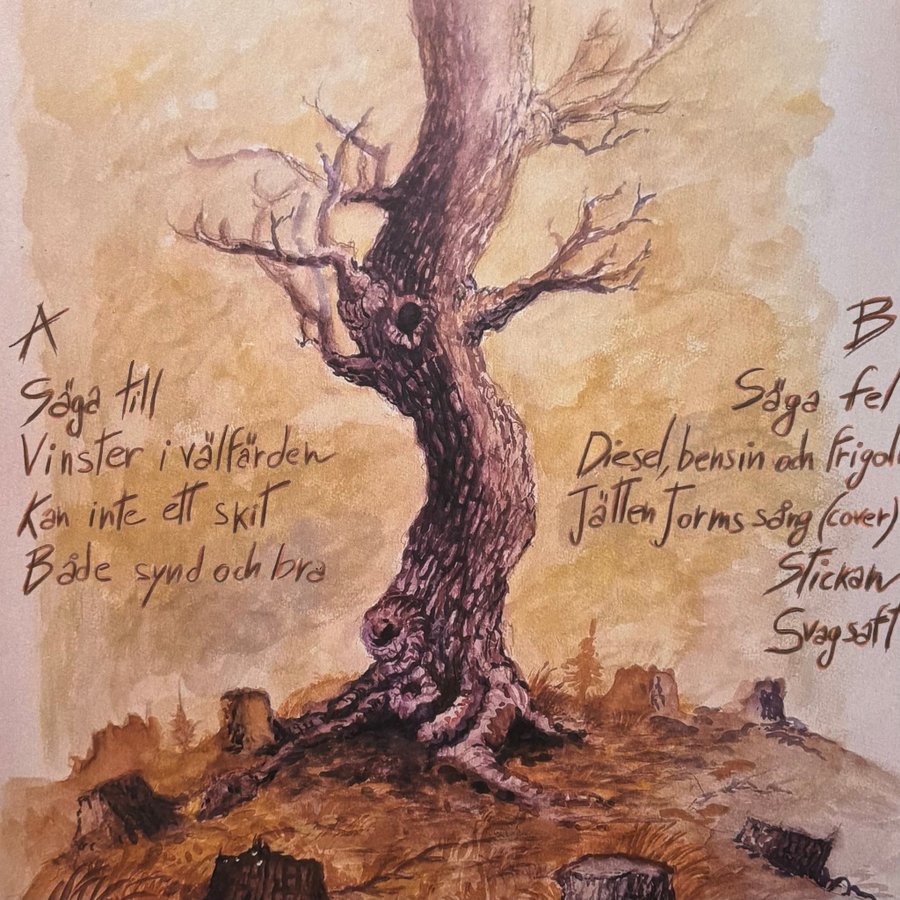 A
Säga till
Vinster i välfärden
Kan inte ett skit
Både synd och bra
B
Säga fel
Diesel, bensin och
Jätten Jorms sång (cover)
Stickan
Svag saft